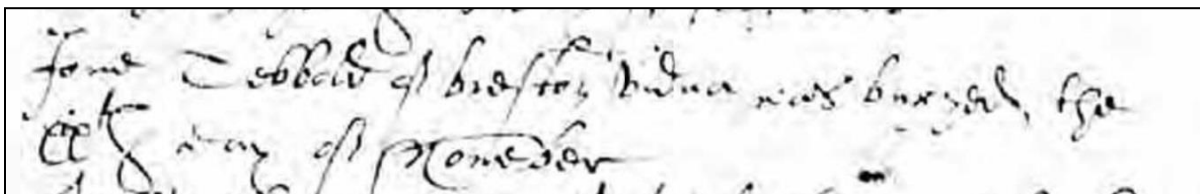 Jone Tebbad of breston vidua was buryed the
xxth day of November